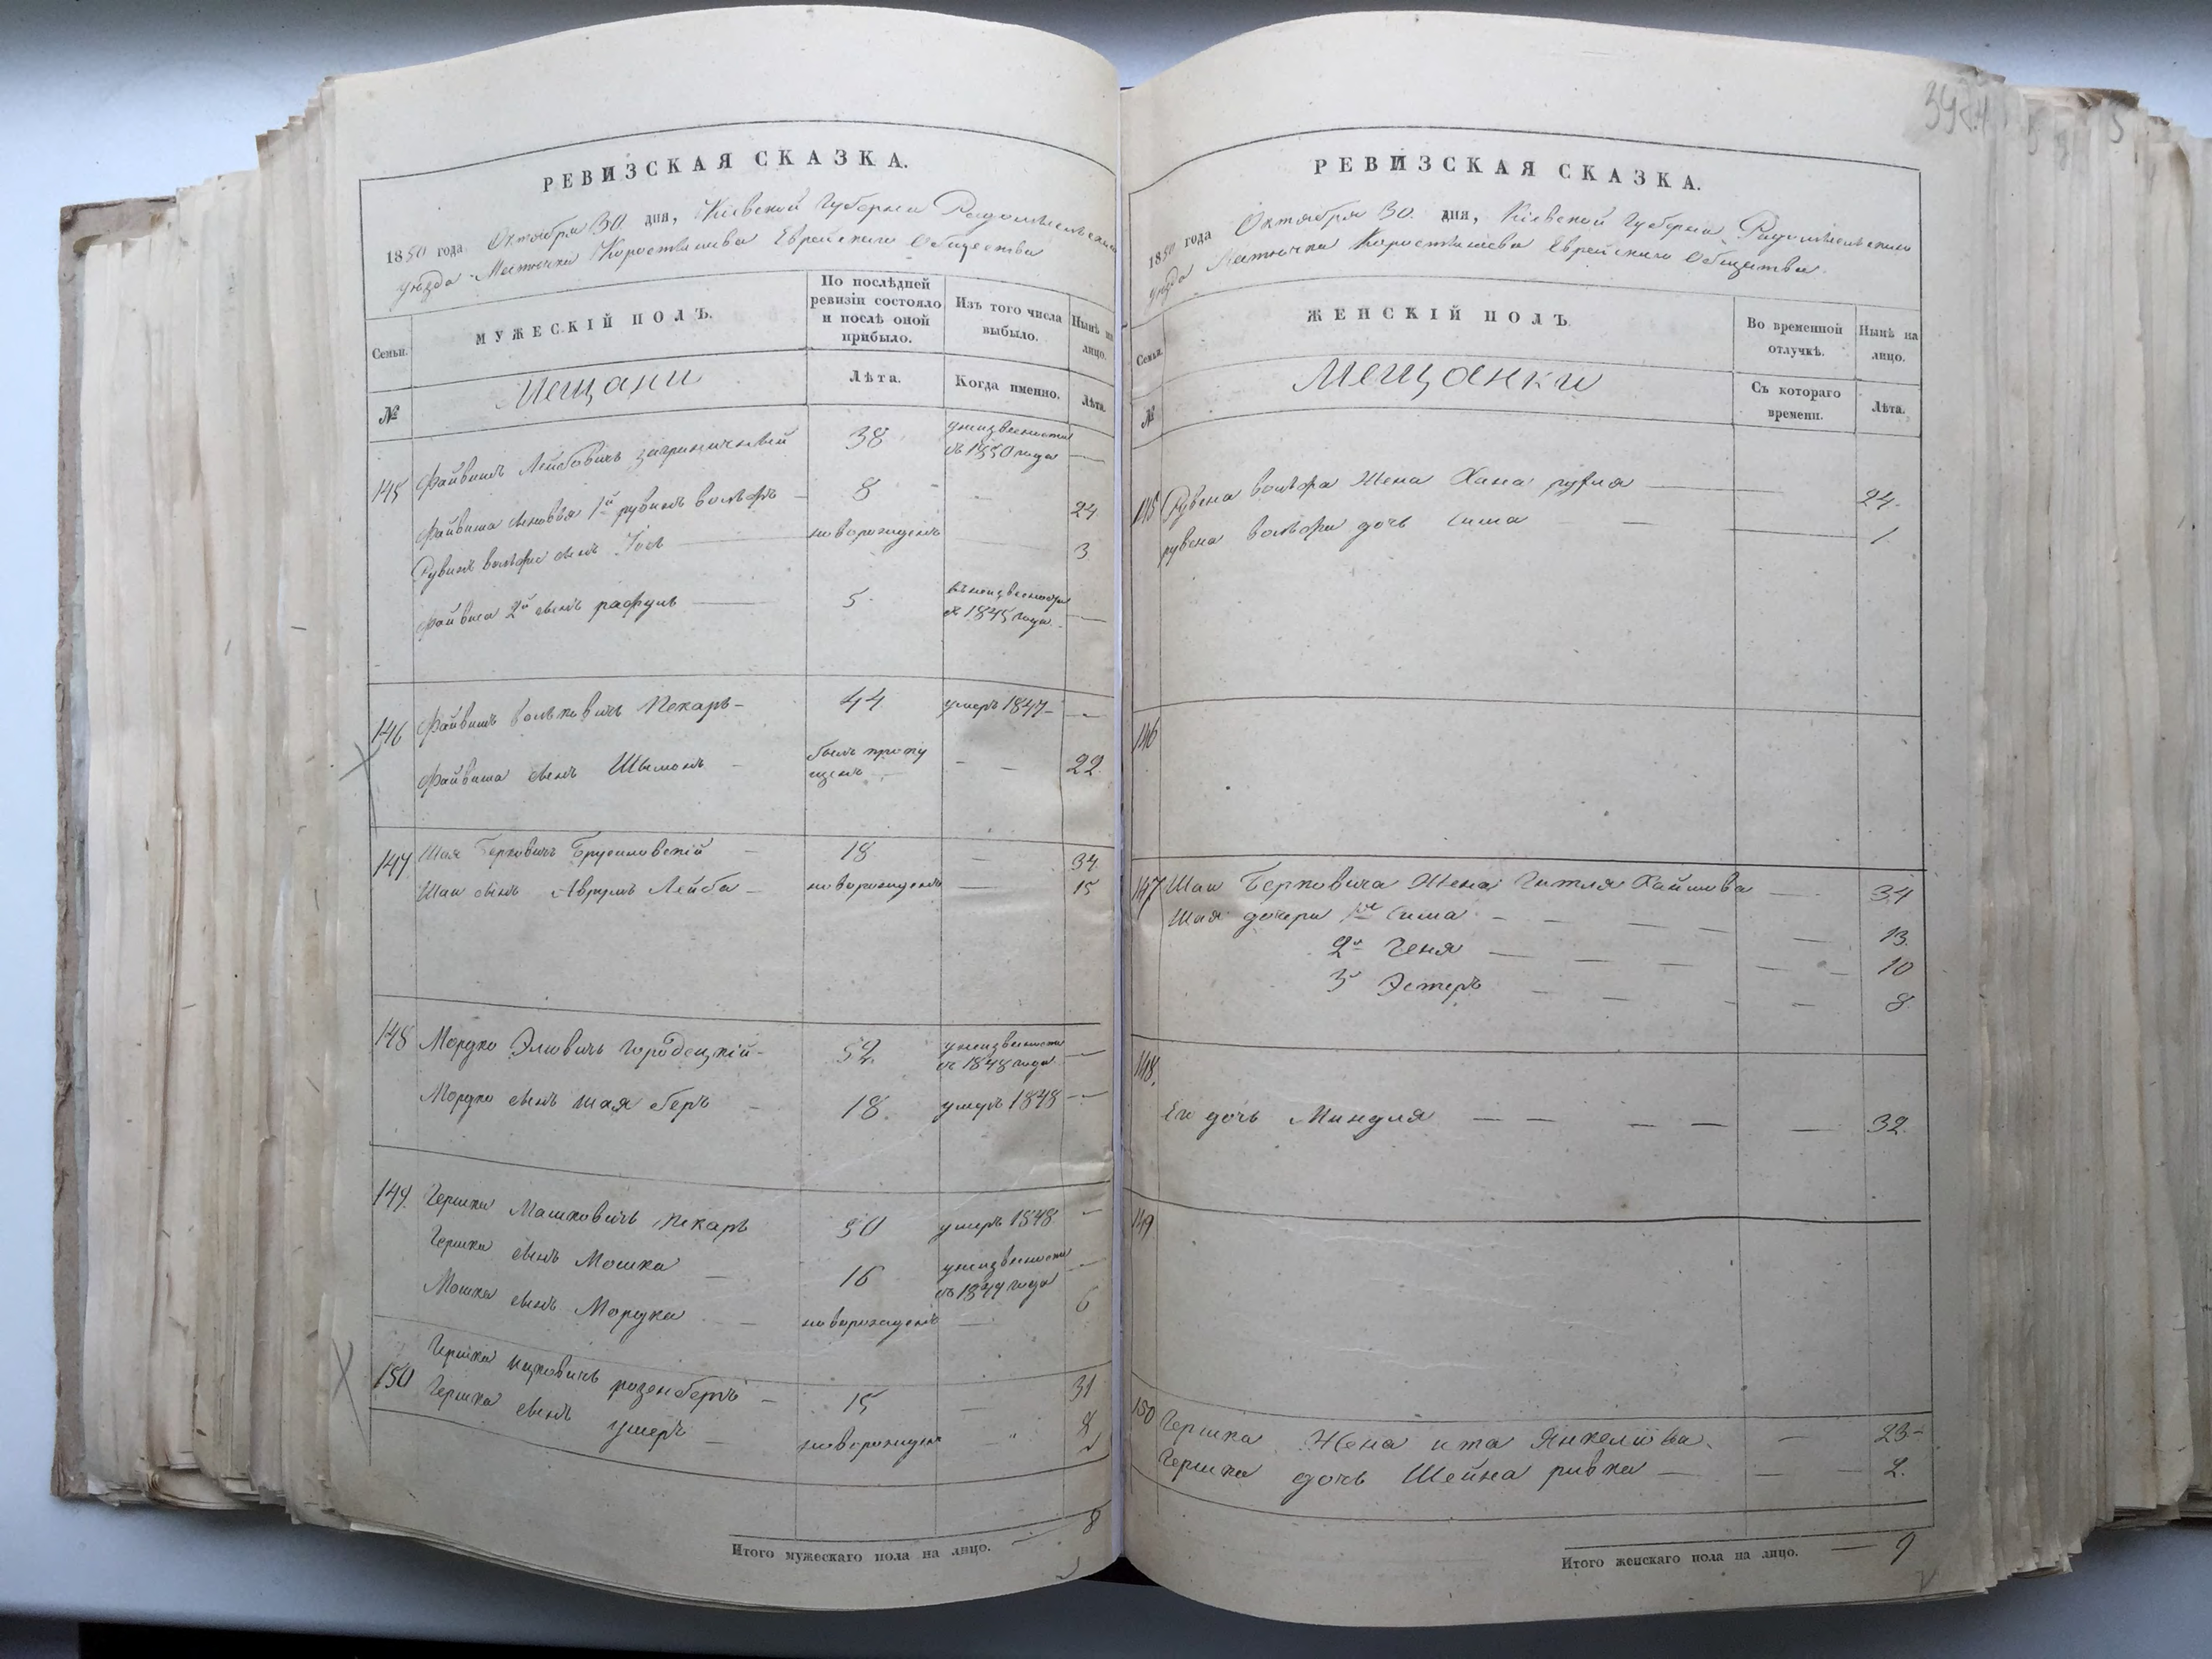 РЕВИЗСКАЯ СКАЗКА.
1850 года Октября 30 дня, Кіевской Губерніи Радомысльскаго
уезда Местечка Коростышева Еврейскаго Общества
Семьи.
МУЖЕСКІЙ ПОЛЪ.
По послѣдней ревизіи состояло и послѣ оной прибыло.
Изъ того числа выбыло.
Нынѣ на лицо.
№
Мещани
Лѣта.
Когда именно.
Лѣта.
145 Файвишъ Лейбовичъ заграничный 38 у неизвестности съ 1850 года —
Файвиша сыновья 1й рувинъ вольфъ — 8 - 24
Рувинъ вольфа сынъ Іось новорожденъ 3
Файвиса 2й сынъ рафуль — 5 въ неизвестности съ 1845 года —
146 Файвишъ Волковичъ Пекарь — 44 умеръ 1847 — —
Файвиша сынъ Шимонъ — былъ пропущенъ — — 22
147 Шая Берковичъ Брусиловскій — 18 — 34
Шаи сынъ Аврумъ Лейба — новорожденъ — 15
148 Мордко Элювичъ Городецкій — 52 у неизвестности съ 1848 года —
Мордко сынъ шая беръ — 18. умеръ 1848 —
149. Гершко Машковичъ пекарь 50 умеръ 1848 —
Гершка сынъ Мошка — 16 у неизвестности съ 1849 года —
Мошка сынъ Мордка — новорожденъ — 6
150 Гершко ицковичъ розенберъ — 15 — 31
Гершка сынъ умеръ — новорожден — 8
Итого мужескаго пола на лицо. — 8
3924
РЕВИЗСКАЯ СКАЗКА.
1850 года Октября 30. дня, Кіевской Губерніи Радомысльскаго
уезда Местечка Коростышева Еврейскаго Общества
Семьи.
ЖЕНСКІЙ ПОЛЪ
Во временной отлучкѣ.
Нынѣ на лицо.
№
Мещанки
Съ котораго времени.
Лѣта.
145 Рувена вольфа Жена Хана рухля — 24.
рувена вольфа дочь Сима — 1
146
147 Шаи Берковича Жена Гитля Хаимова — 34
Шая дочери 1я Сима — — — 13.
2я Геня — — — 10
3я Эстеръ — — — 8
148.
Его дочь Миндля — — — 32.
149
150 Гершка Жена ита Янкелiова — 23 —
Гершка дочь Шейна ривка — — 2.
Итого женскаго пола на лицо. — 9